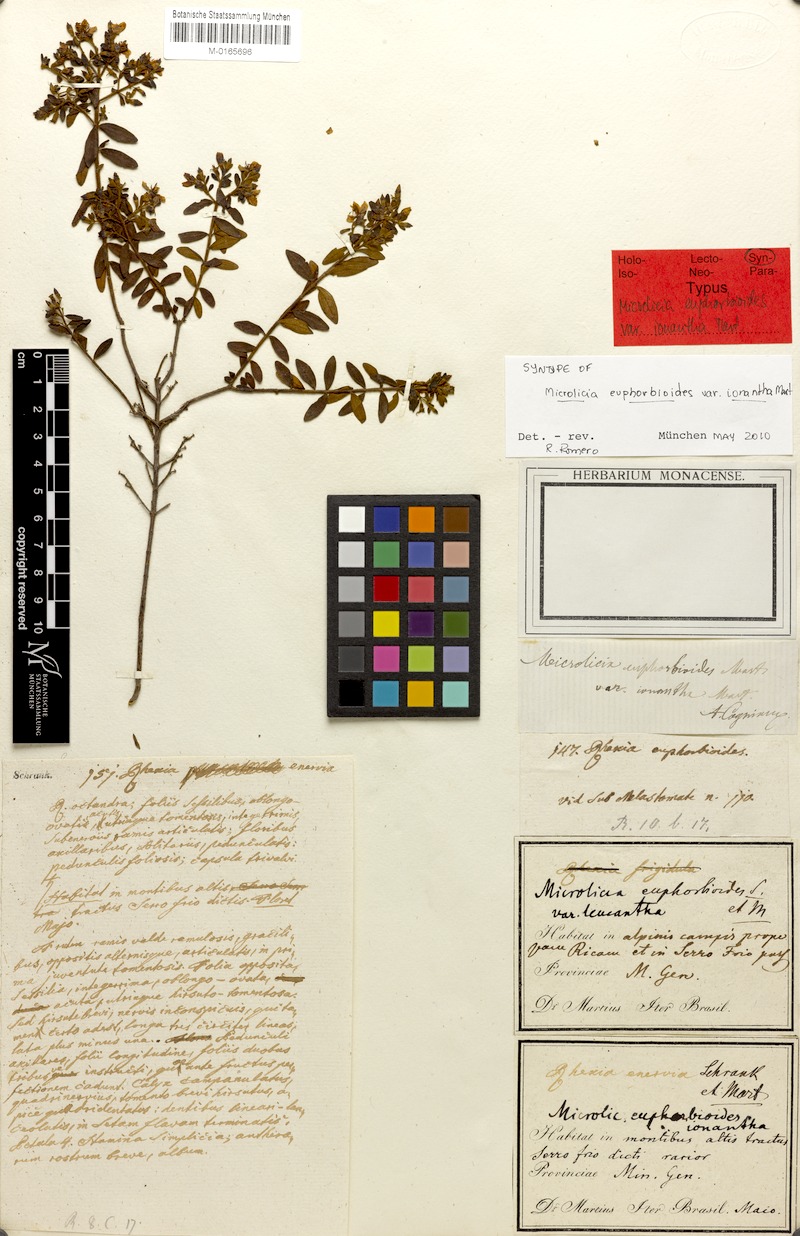 Botanische Staatssammlung München
M-0165696
Holo- Lecto- Syn-
Iso- Neo- Para-
Typus
Microlicia euphorbioides
var. ionantha Mart
SYNTYPE OF
Microlicia euphorbioides var. ionantha Mart
Det. - rev. München MAY 2010
R. Romero
HERBARIUM MONACENSE.
cm 0 1 2 3 4 5 6 7 8 9 10
copyright reserved
BOTANISCHE
STAATSSAMMLUNG
MÜNCHEN
Microlicia euphorbioides Mart.
var. ionantha Mart.
A. Cogniaux
147. Rhexia euphorbioides.
vid sub Melastomate n. 170.
R. 10. b. 17.
Rhexia frigidula
Microlicia euphorbioides S.
var. leucantha et M
Habitat in alpinis campis prope
Vam Ricam et in Serro Frio
Provinciae M. Gen.
Dr Martius Iter Brasil.
Rhexia enervia Schrank
et Mart
Microlic. euphorbioides
ionantha
Habitat in montibus altis tractus
Serro frio dicti rarior
Provinciae Min. Gen.
Dr Martius Iter Brasil. Maio.
Schrank. 151. Rhexia enervia
R. octandra; foliis sessilibus, oblongo-
ovatis, acutis, utrinque tomentosis, integerrimis,
subenerviis; ramis articulatis; floribus
axillaribus, solitariis, pedunculatis:
pedunculis foliosis; capsula trivalvi
Habitat in montibus altis
tractus Serro frio dictis. Floret
Majo.
ramis valde ramulosis, gracili-
bus, oppositis alternisque, articulatis, in pri-
ma juventute tomentosis. Folia opposita,
sessilia, integerrima, oblongo-ovata,
acuta, utrinque hirsuto-tomentosa:
sed hirsutie brevi; nervis inconspicuis, quita-
men certo adest, longa tres circiter lineas,
lata plus minus una. Pedunculi
axillares, folii longitudine, foliis duobus
tribus instructi, qui ante fructus per-
fectionem cadunt. Calyx campanulatus,
quadrinervius, tomento brevi hirsutus, a-
pice quadridentatus: dentibus lineari-lan-
ceolatis, in setam flavam terminatis.
Petala 4. Stamina simplicia; anthera-
rum rostrum breve, album.
R. 8. C. 17.